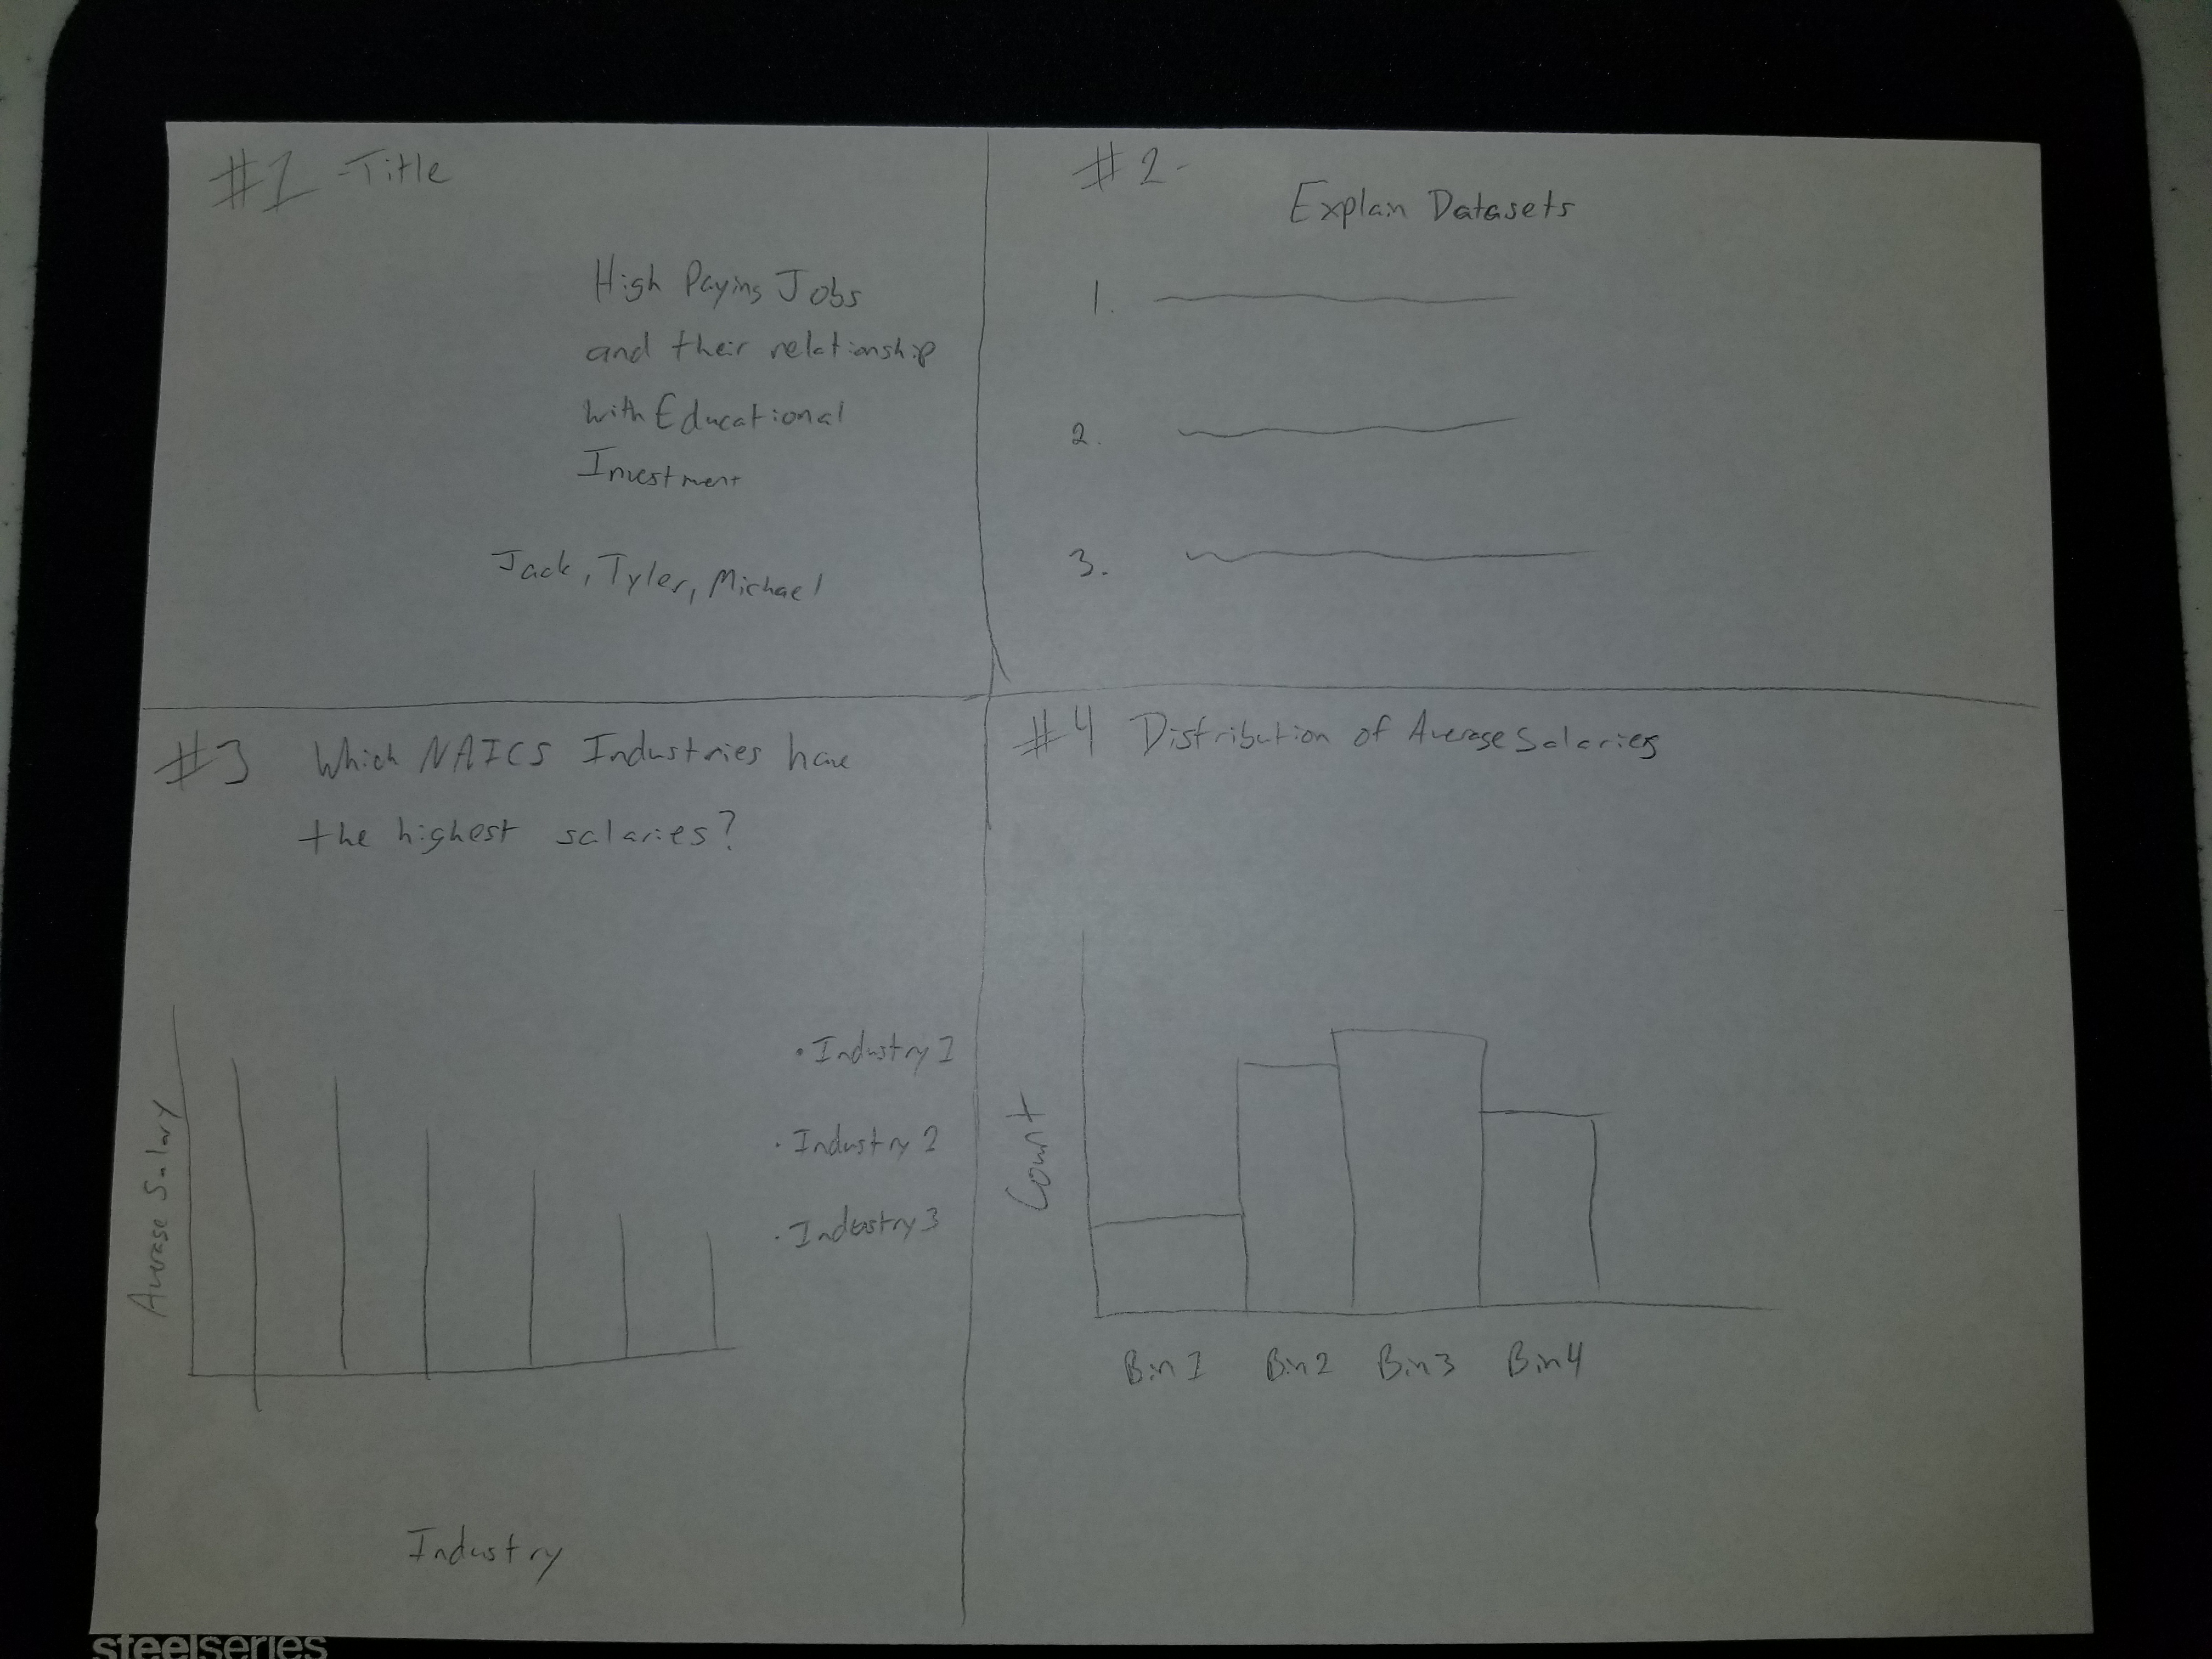 #1 -Title
High Paying Jobs
and their relationship
with Educational
Investment
Jack, Tyler, Michael
#2-
Explain Datasets
1.
2.
3.
#3 Which NAICS Industries have
the highest salaries?
Average Salary
• Industry 1
• Industry 2
• Industry 3
Industry
#4 Distribution of Average Salaries
Count
Bin 1 Bin 2 Bin 3 Bin 4
steelseries